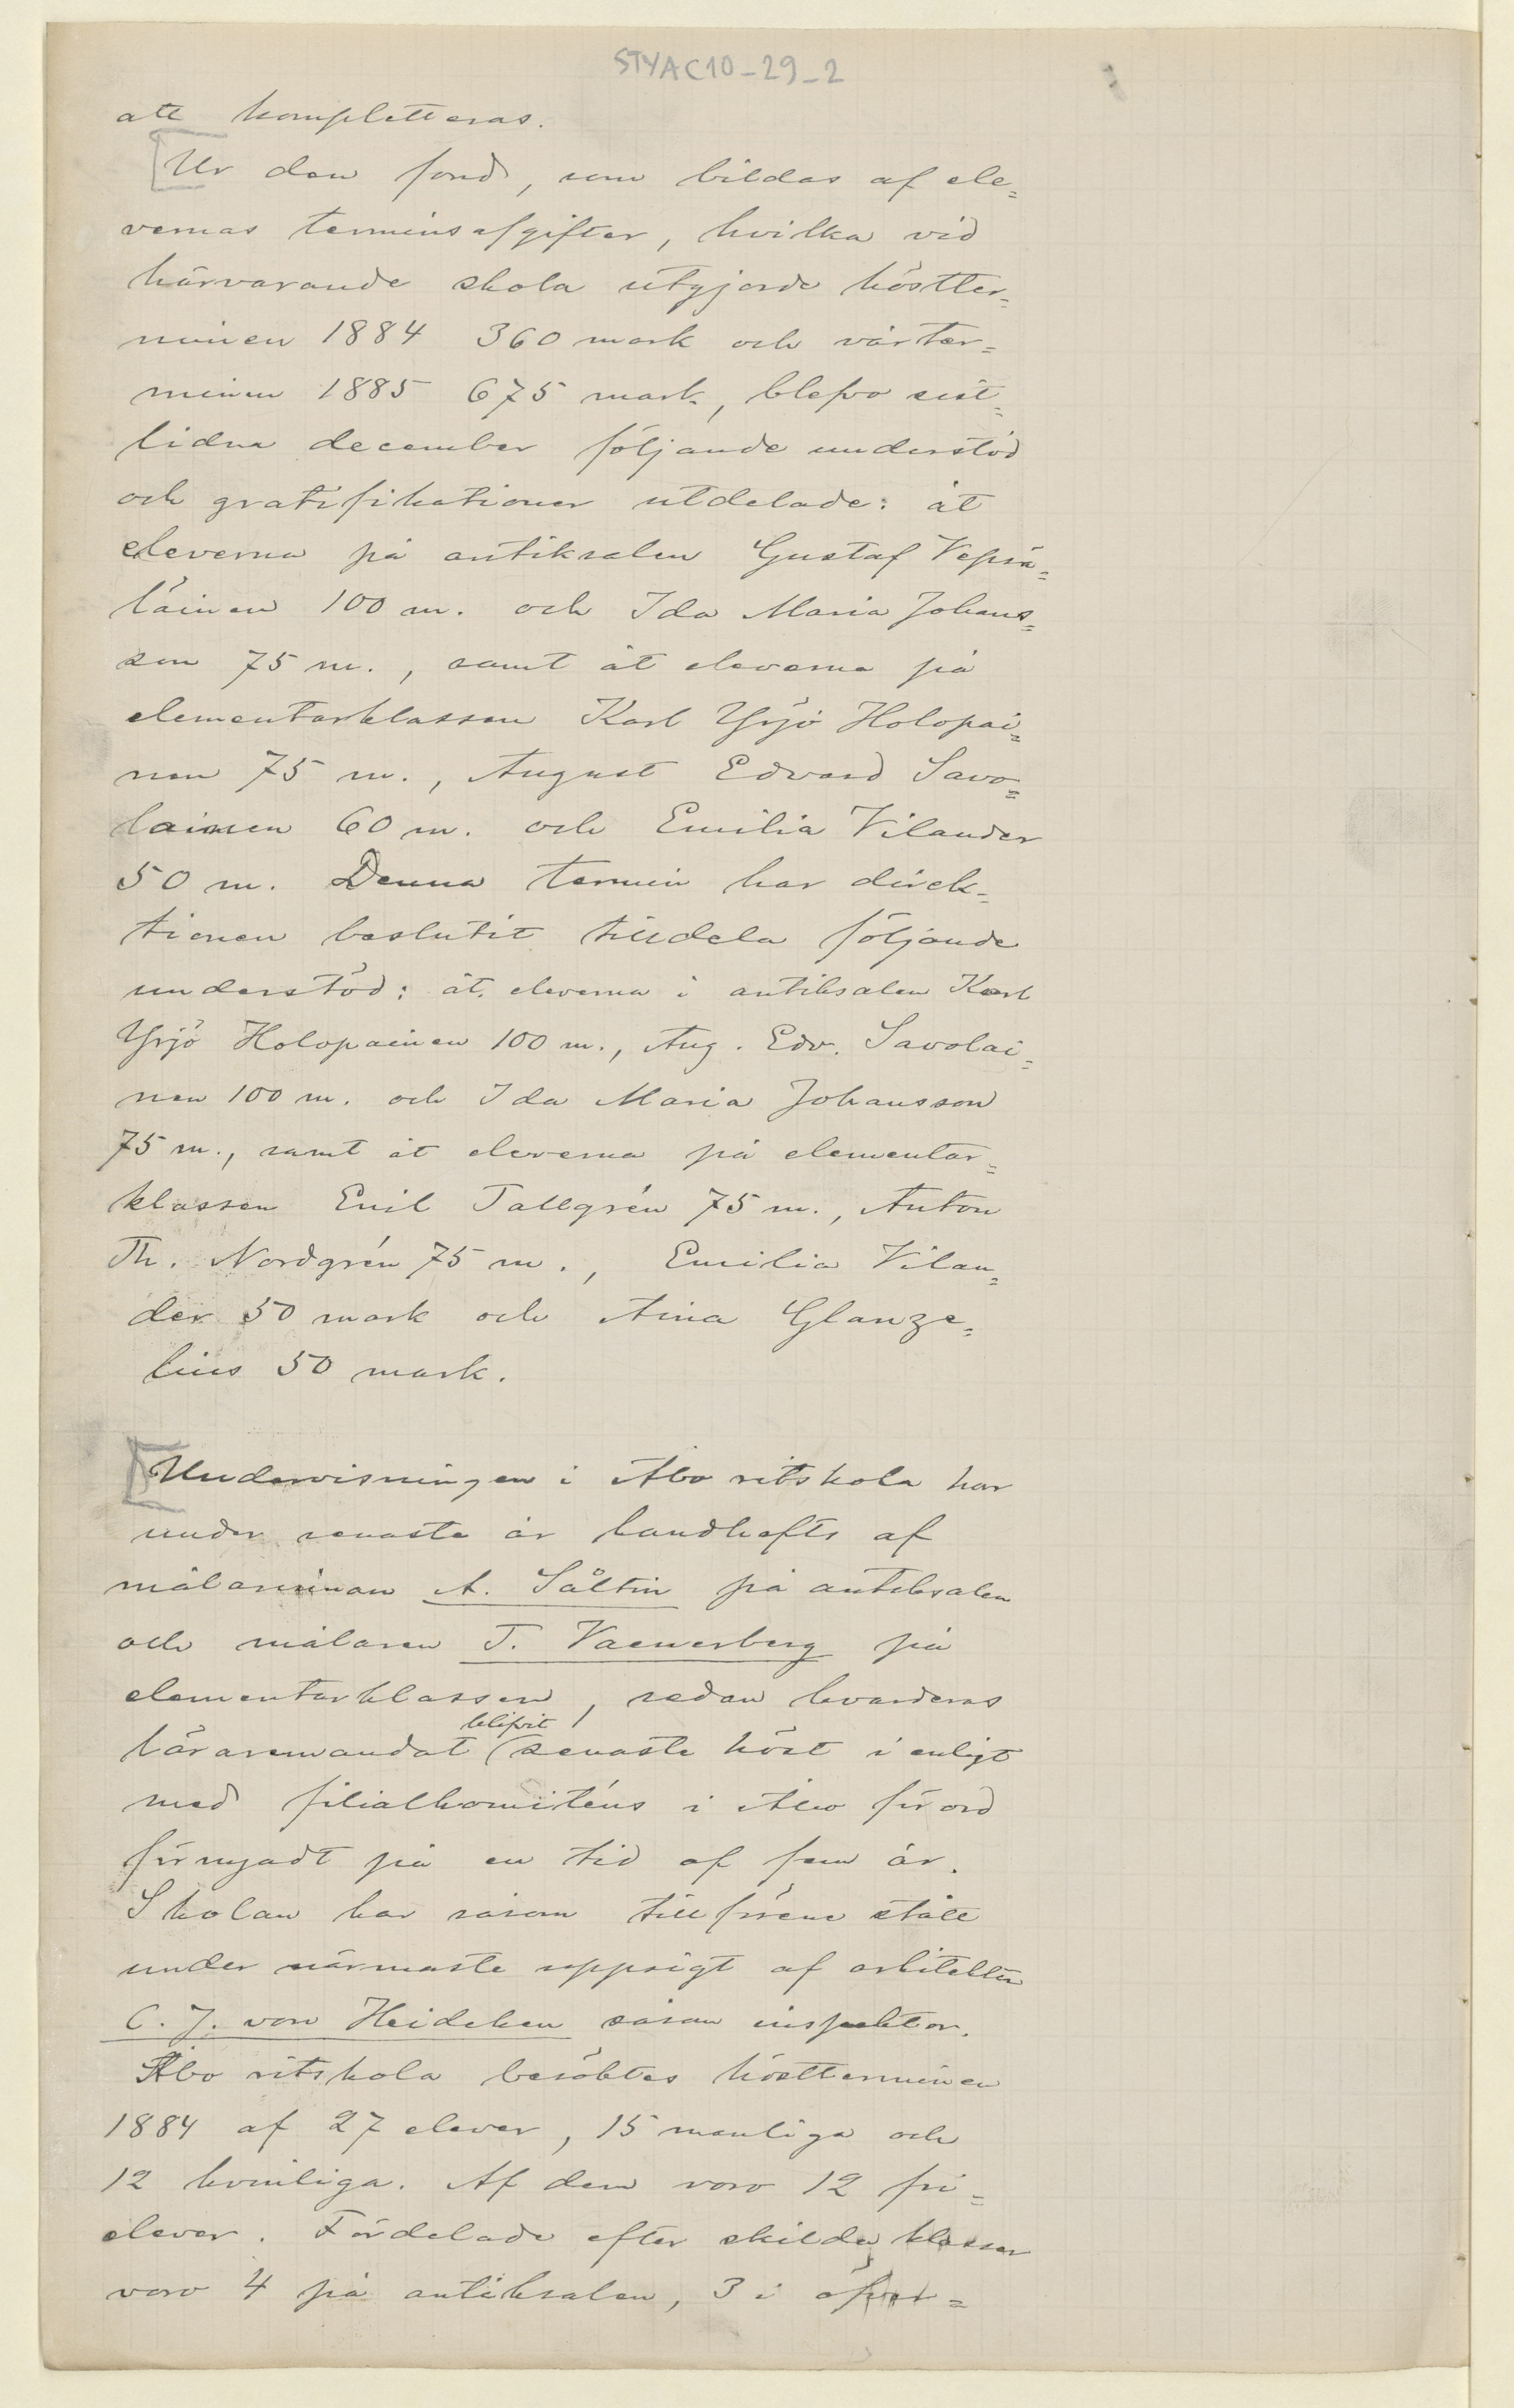 STYAC10-29-2
att kompletteras.
Ur den fond, som bildas af ele=
vernas terminsafgifter, hvilka vid
härvarande skola utgjorde höstter=
minen 1884 360 mark och vårter=
minen 1885 675 mark, blefvo sist=
lidna december följande understöd
och gratifikationer utdelade: åt
eleverna på antiksalen Gustaf Vepsä=
läinen 100 m. och Ida Maria Johans=
son 75 m., samt åt eleverna på
elementarklassen Karl Yrjö Holopai=
nen 75 m., August Edvard Savo=
lainen 60 m. och Emilia Vilander
50 m. Denna termin har direk=
tionen beslutit tilldela följande
understöd: åt eleverna i antiksalen Karl
Yrjö Holopainen 100 m., Aug. Edv. Savolai=
nen 100 m. och Ida Maria Johansson
75 m., samt åt eleverna på elementar=
klassen Emil Tallgrén 75 m., Anton
Th. Nordgrén 75 m., Emilia Vilan=
der 50 mark och Aina Glanze=
lius 50 mark.
Undervisningen i Åbo ritskola har
under senaste år handhafts af
målarinnan A. Såltin på antiksalen
och målaren T. Vaenerberg på
elementarklassen, sedan hvarderas
blifvit
läraremandat senaste höst i enligt
med filialkomiténs i Åbo förord
förnyadt på en tid af fem år.
Skolan har såsom tillförene stått
under närmaste uppsigt af arkitekten
C. J. von Heideken såsom inspektor.
Åbo ritskola besöktes höstterminen
1884 af 27 elever, 15 manliga och
12 kvinliga. Af dem voro 12 fri=
elever. Fördelade efter skilda klasser
voro 4 på antiksalen, 3 i öfver=